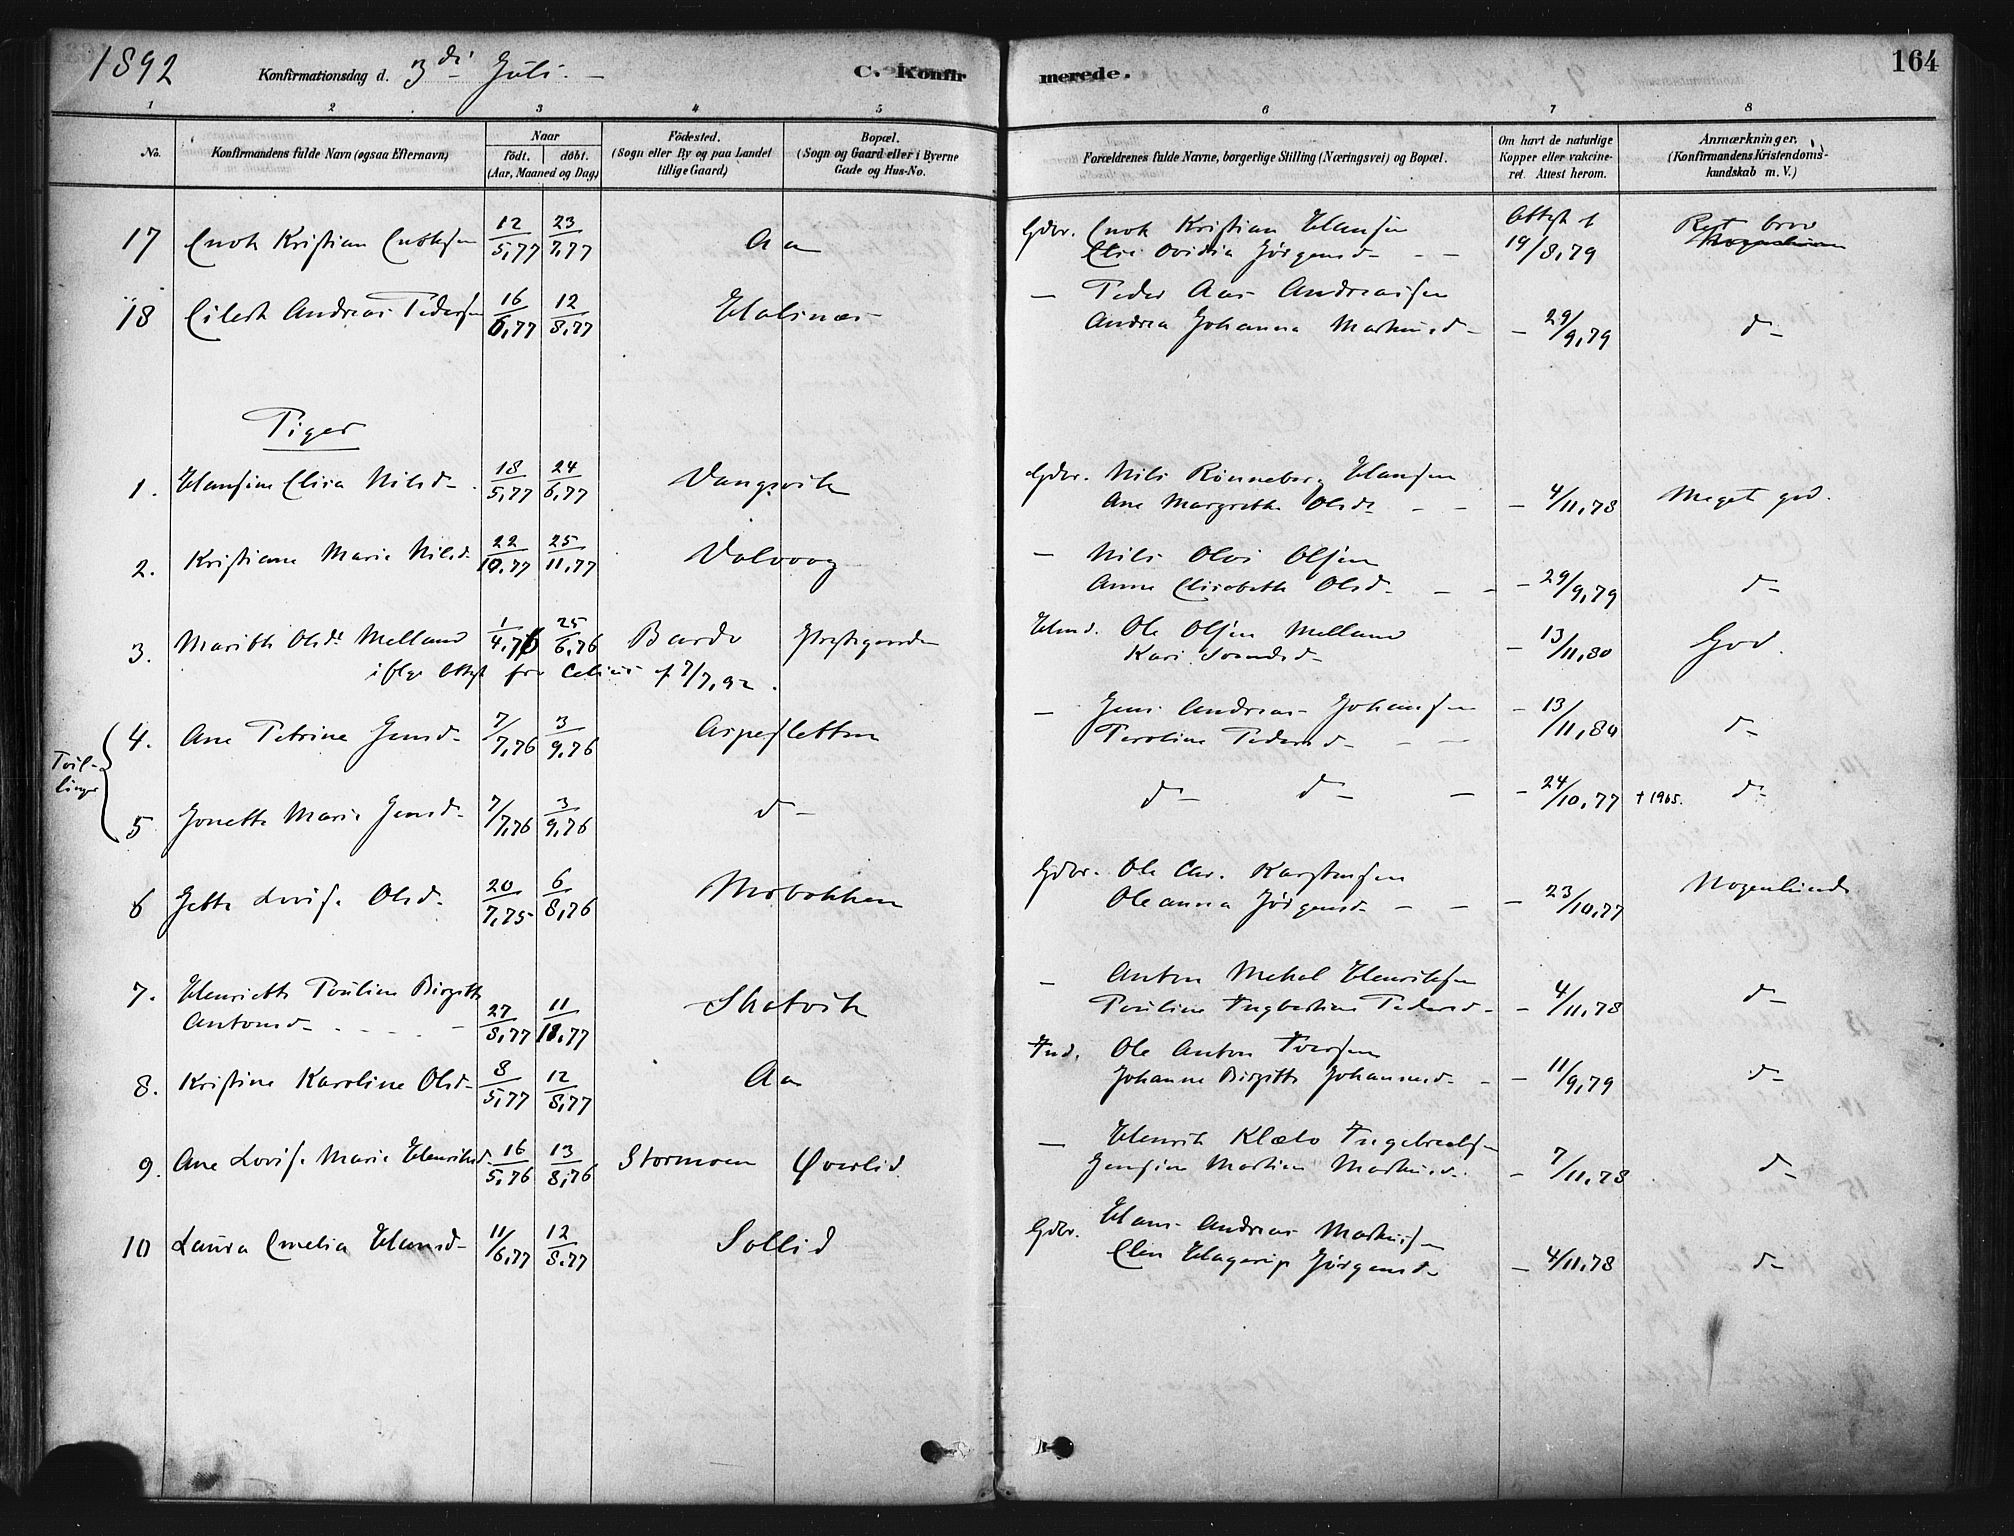 1892 Konfirmationsdag d. 3di Juli. C. Konfirmerede. 164
1 2 3 4 5 6 7 8
No. Konfirmandens fulde Navn (ogsaa Efternavn) Naar født. døbt. (Aar, Maaned og Dag) Födested. (Sogn eller By og paa Landet tillige Gaard) Bopæl. (Sogn og Gaard eller i Byerne Gade og Hus-No. Forældrenes fulde Navne, borgerlige Stilling (Næringsvei) og Bopæl. Om havt de naturlige Kopper eller vakcineret. Attest herom. Anmærkninger. (Konfirmandens Kristendomskundskab m. V.)
17 Enok Kristian Enoksen 12/5,77 23/7,77 Aa Gdbr. Enok Kristian Hansen Attest af Ret bra
Elie Ovidia Jørgensd - - 19/8,79
18 Eilert Andreas Pedersen 16/6,77 12/8,77 Halsnæs - Peder Aas Andreassen
Andrea Johanna Markusd - - 29/9,79 d-
Piger
1. Hansine Elisa Nilsd - 18/5,77 24/6,77 Vangsvik Gdbr. Nils Rønneberg Hansen
Ane Margrethe Olsd - - - 4/11,78 Meget god.
2. Kristiane Marie Nilsd. 22/10,77 25/11,77 Valvaag - Nils Olai Olsen
Anne Elisabeth Olsd - - - 29/9,79 d-
3. Marith Olsdt Melland 1/4,76 25/6,76 Bardo Prestgaarden Hmd. Ole Olsen Melland - 13/11,80 God.
ifølge Attest fra Celius af 7/7,92. Kari Svendsd -
Tvil-
linge
4. Ane Petrine Jensd - 7/7,76 3/9,76 Aspesletten - Jens Andreas Johansen - 13/11,80 d-
Peroline Pedersd - - -
5 Jonette Marie Jensd - 7/7,76 3/9,76 d- d- d- - - 24/10,77 † 1965. d-
6 Jette Lovise Olsd - 20/7,75 6/8,76 Mobakken Gdbr. Ole Chr. Karstensen
Oleanna Jørgensd - - - 23/10,77 Nogenlunde
7. Henriette Pouline Birgitte - Anton Mekal Henriksen
Antonsd - - - 27/8,77 11/11,77 Skatvik Pouline Ingbertine Pedersd - - 4/11,78 d-
8. Kristine Karoline Olsd - 8/5,77 12/8,77 Aa Ind. Ole Anton Iversen
Johanne Birgitte Johannesd - - 11/9,79 d-
9. Ane Lovise Marie Henriksd - 16/5,76 13/8,76 Stormoen Øverlid. - Henrik Klæbo Ingebregtsen
Jensine Martine Markusd - - 7/11,78 d-
10 Laura Emelia Hansd - 11/6,77 12/8,77 Sollid Gdbr. Hans Andreas Markussen
Elen Hagerup Jørgensd - - 4/11,78 d-